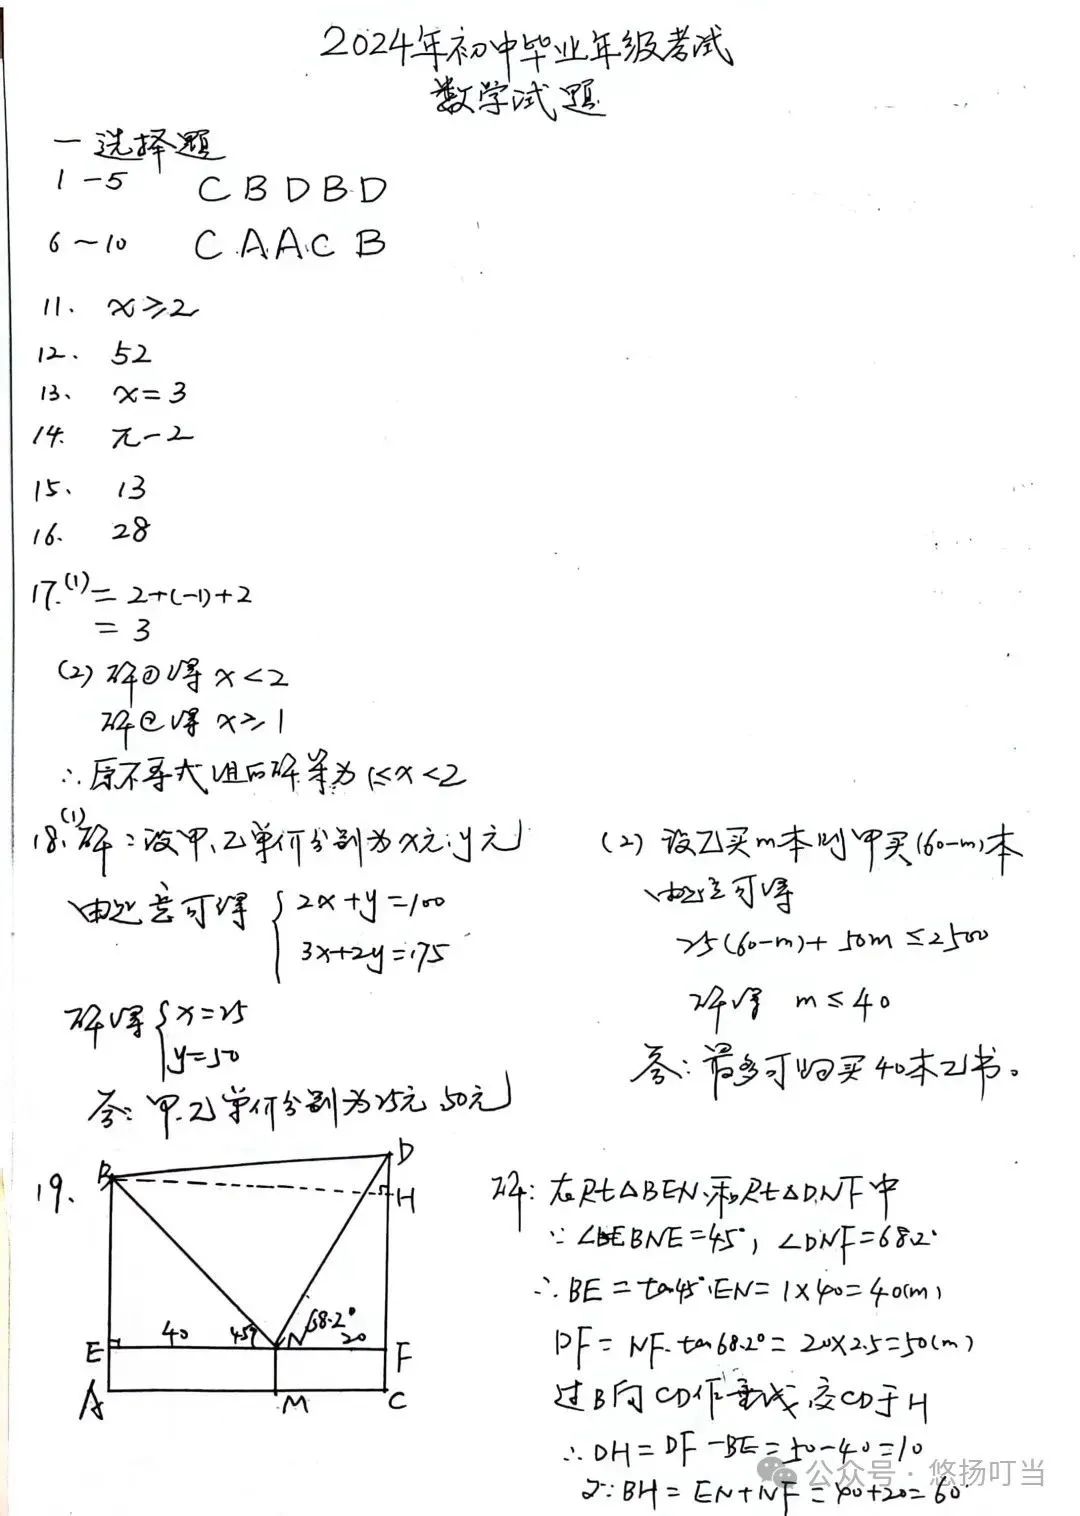 2024年初中毕业年级考试
数学试题
一 选择题
1-5 C B D B D
6~10 C A A C B
11. x≥2
12. 52
13. x=3
14. π-2
15. 13
16. 28
17.(1) = 2+(-1)+2
= 3
(2) 解①得 x<2
解②得 x≥1
∴原不等式组的解集为 1≤x<2
18.(1) 解:设甲、乙单价分别为x元,y元
由题意可得 { 2x+y=100
3x+2y=175
解得 { x=25
y=50
答:甲、乙单价分别为25元,50元
(2) 设乙买m本则甲买(60-m)本
由题意可得
25(60-m)+50m≤2500
解得 m≤40
答:最多可购买40本乙书。
19.
B
D
H
E
40
45°
N
68.2°
20
F
A
M
C
解:在Rt△BEN和Rt△DNF中
∵∠BNE=45°,∠DNF=68.2°
∴BE=tan45°·EN=1×40=40(m)
DF=NF·tan68.2°=20×2.5=50(m)
过B向CD作垂线交CD于H
∴DH=DF-BE=50-40=10
又∵BH=EN+NF=40+20=60
公众号·悠扬叮当